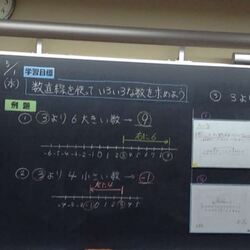 5/1
(水)
学習目標
数直線を使っていろいろな数を求めよう
例題
① ③より6大きい数 → ⑨
右に6
-6 -5 -4 -3 -2 -1 0 1 2 ③ 4 5 6 7 8 ⑨
② ③より4小さい数 → -1
左に4
-4 -3 -2 -1 0 1 2 ③ 4 5
③ 3よ